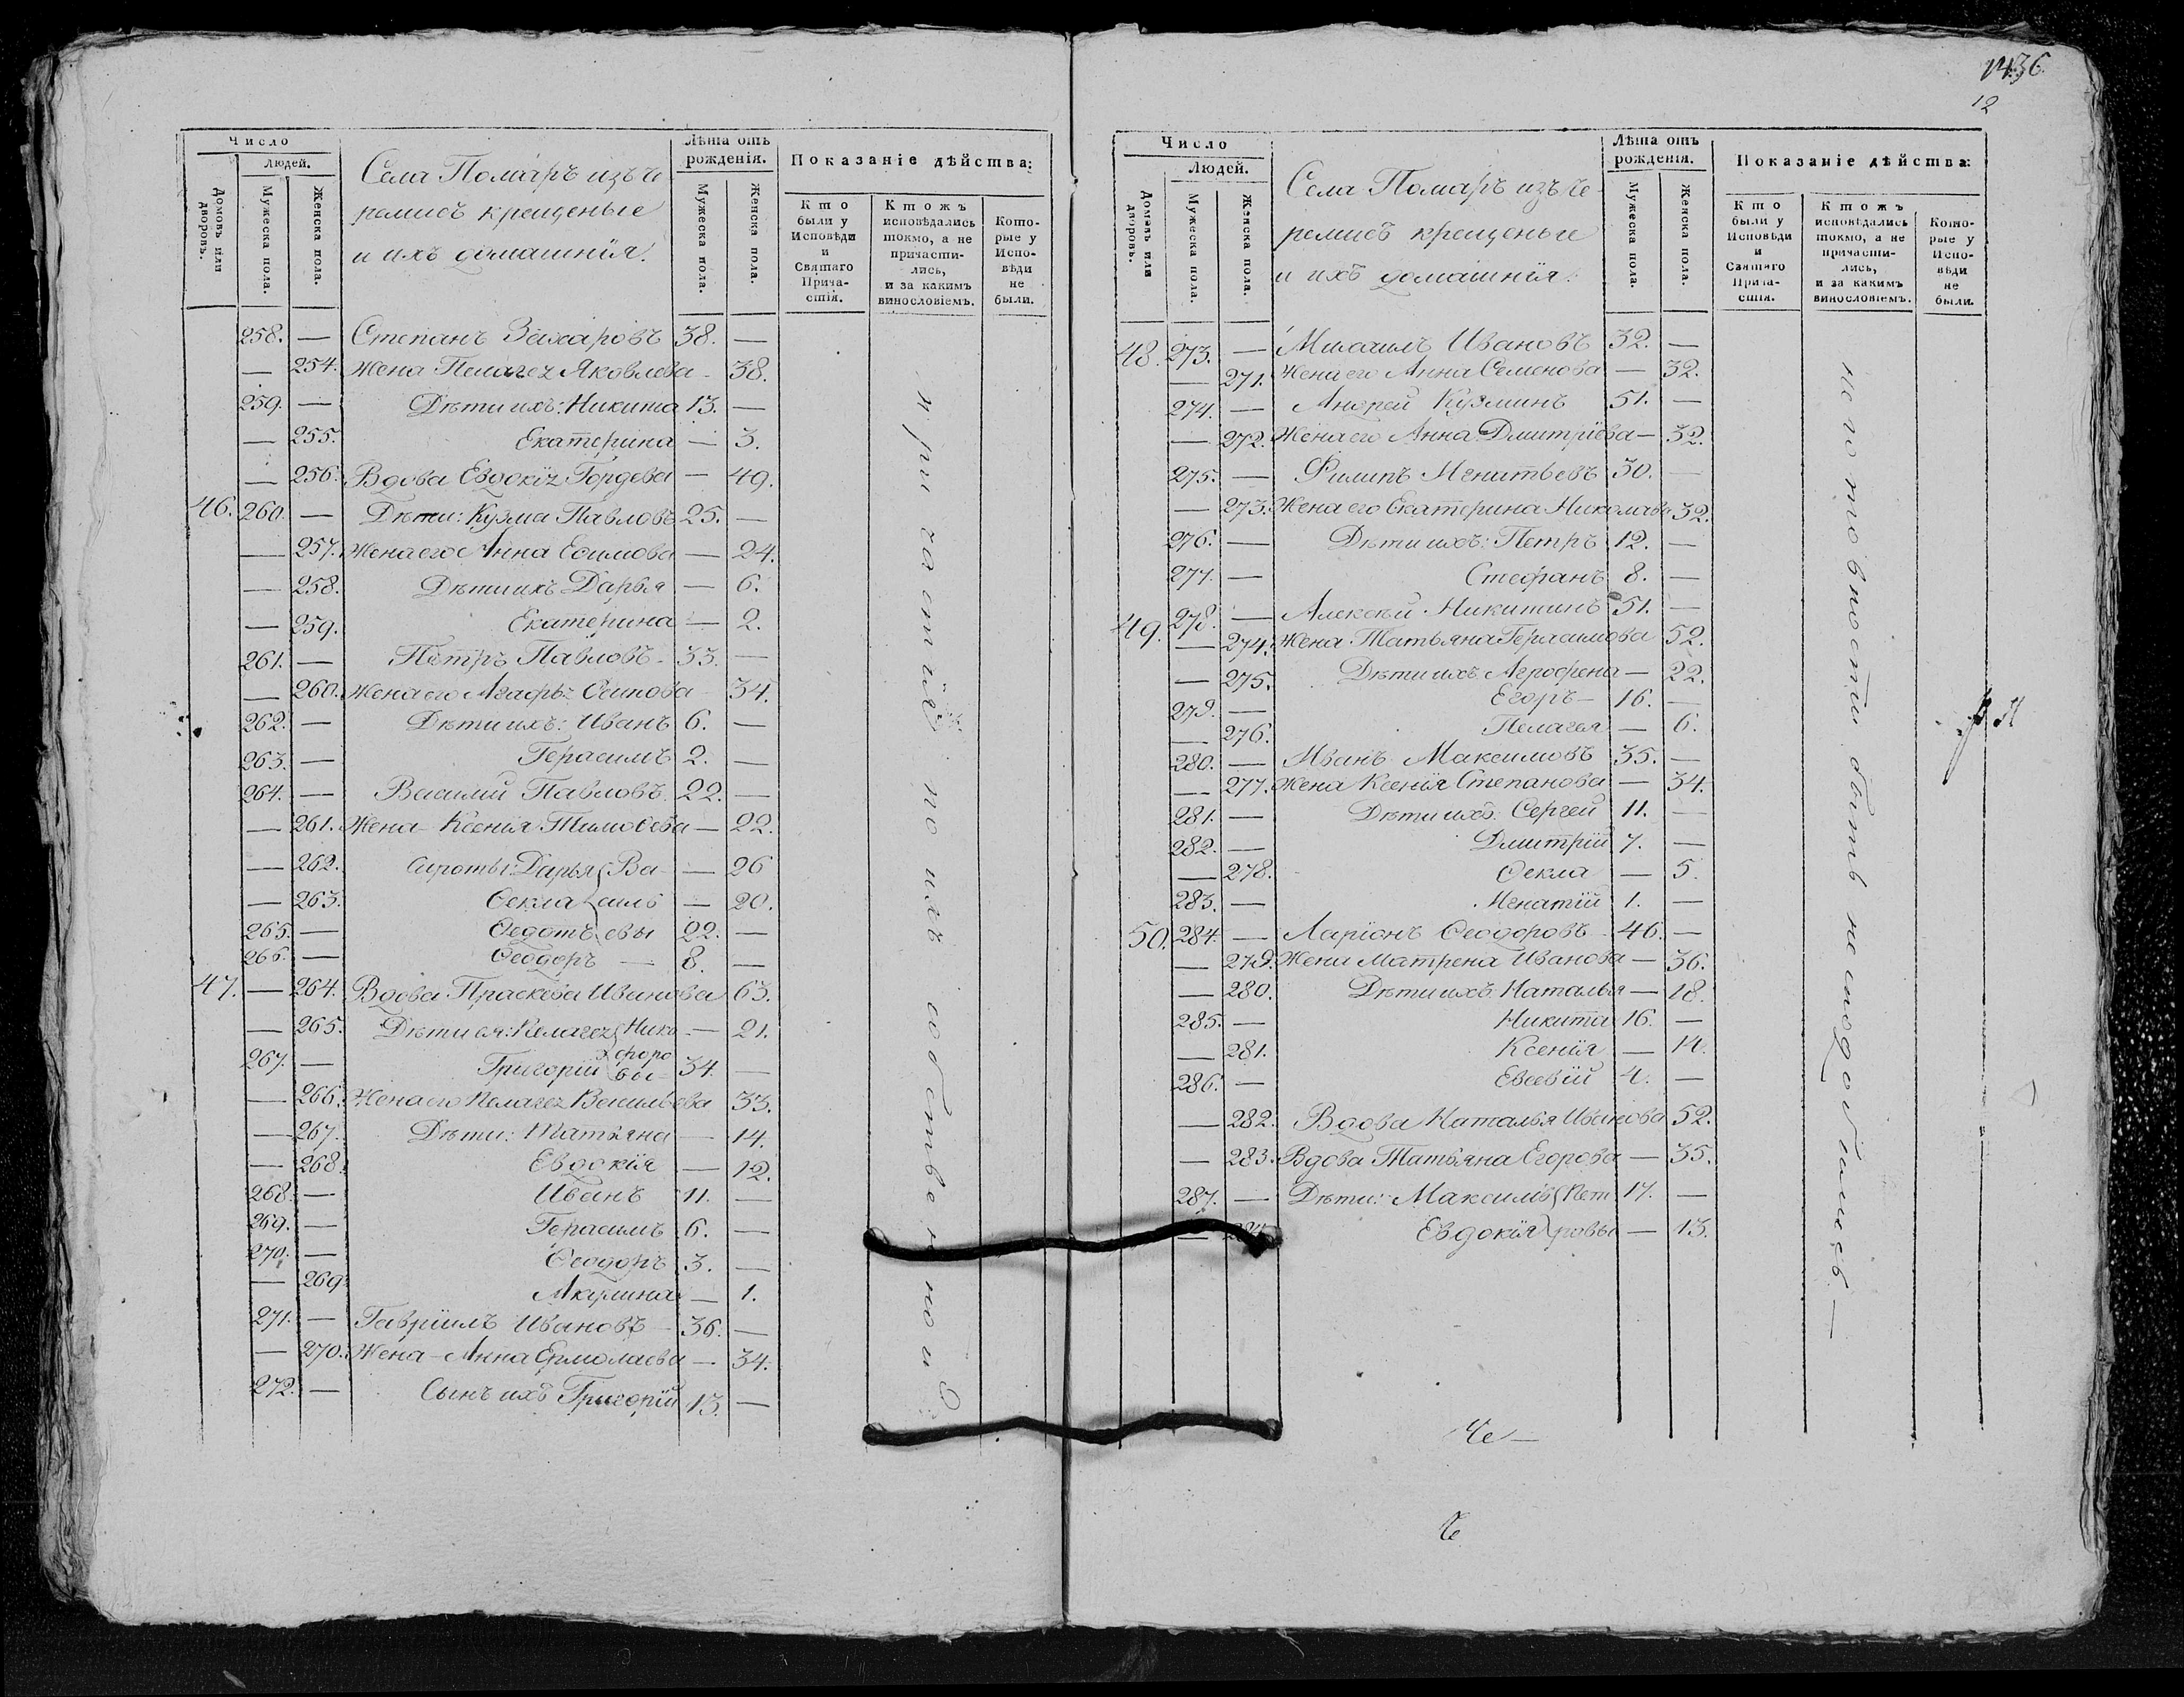 1436
12
Число
Людей.
Домовъ или дворовъ.
Мужеска пола.
Женска пола.
Села Помаръ изъ че
ремисъ крещеные
и ихъ домашнія.
Лѣта отъ рожденія.
Мужеска пола.
Женска пола.
Показаніе дѣйства:
Кто были у Исповѣди и Святаго Причастія.
Ктожъ исповѣдались токмо, а не причастились, и за какимъ винословіемъ.
Которые у Исповѣди не были.
258. — Степанъ Захаровъ 38. —
— 254. Жена Пелагея Яковлева — 38.
259. — Дѣти ихъ: Никита 13. —
— 255. Екатерина — 3.
— 256. Вдова Евдокія Гордева — 49.
46. 260. — Дѣти: Кузма Павловъ 25. —
— 257. Жена его Анна Ефимова — 24.
— 258. Дѣти ихъ Дарья — 6.
— 259. Екатерина — 2.
261. — Петръ Павловъ 33. —
— 260. Жена его Агафья Осипова 34.
262. — Дѣти ихъ: Иванъ 6. —
263. — Герасимъ 2. —
264. — Василий Павловъ 22. —
— 261. Жена Ксенія Тимоѳева — 22.
— 262. Сироты: Дарья Ва — 26
— 263. Ѳекла силь — 20.
265. — Ѳедотъ евы 22. —
266. — Ѳеодоръ — 8. —
47. — 264. Вдова Праскева Иванова 63.
— 265. Дѣти ея: Пелагея Нико — 21.
267. — Григорій форовы 34. —
— 266. Жена его Пелагея Васильева 33.
— 267. Дѣти: Татьяна — 14.
— 268. Евдокія — 12.
268. — Иванъ 11. —
269. — Герасимъ 6. —
270. — Ѳеодоръ 3. —
— 269. Акулина — 1.
271. — Гавріилъ Ивановъ 36. —
— 270. Жена Анна Ермолаева — 34.
272. — Сынъ ихъ Григорій 13. —
при частіи по ихъ собственной
Число
Людей.
Домовъ или дворовъ.
Мужеска пола.
Женска пола.
Села Помаръ изъ че
ремисъ крещеные
и ихъ домашнія.
Лѣта отъ рожденія.
Мужеска пола.
Женска пола.
Показаніе дѣйства:
Кто были у Исповѣди и Святаго Причастія.
Ктожъ исповѣдались токмо, а не причастились, и за какимъ винословіемъ.
Которые у Исповѣди не были.
48. 273. — Михаилъ Ивановъ 32. —
— 271. Жена его Анна Семенова — 32.
274. — Андрей Кузминъ 51. —
— 272. Жена его Анна Дмитріева — 32.
275. — Филипъ Игнатьевъ 30. —
— 273. Жена его Екатерина Николава 32.
276. — Дѣти ихъ: Петръ 12. —
277. — Стефанъ 8. —
49. 278. — Алексѣй Никитинъ 51. —
— 274. Жена Татьяна Герасимова 52.
— 275. Дѣти ихъ Агрофена — 22.
279. — Егоръ — 16. —
— 276. Пелагея — 6.
280. — Иванъ Максимовъ 35. —
— 277. Жена Ксенія Степанова — 34.
281. — Дѣти ихъ: Сергей 11. —
282. — Дмитрій 7. —
— 278. Ѳекла — 5.
283. — Игнатій 1. —
50. 284. — Ларіонъ Ѳеодоровъ 46. —
— 279. Жена Матрена Иванова — 36.
— 280. Дѣти ихъ Наталья — 18.
285. — Никита 16. —
— 281. Ксенія — 14.
286. — Евсевій 4. —
— 282. Вдова Наталья Иванова 52.
— 283. Вдова Татьяна Егорова — 35.
287. — Дѣти: Максимъ Пет 17. —
— 284. Евдокія ровы — 13.
неготовности быть не сподобились —
Че —